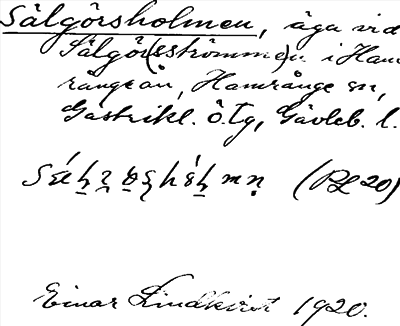 Sälgörsholmen, äga vid
Sälgör(sströmme)n. i Ham
rångeån, Hamrånge sn,
Gästrikl. ö. Tg, Gävleb. l.
(BL 20)
Einar Lindkvist 1920.